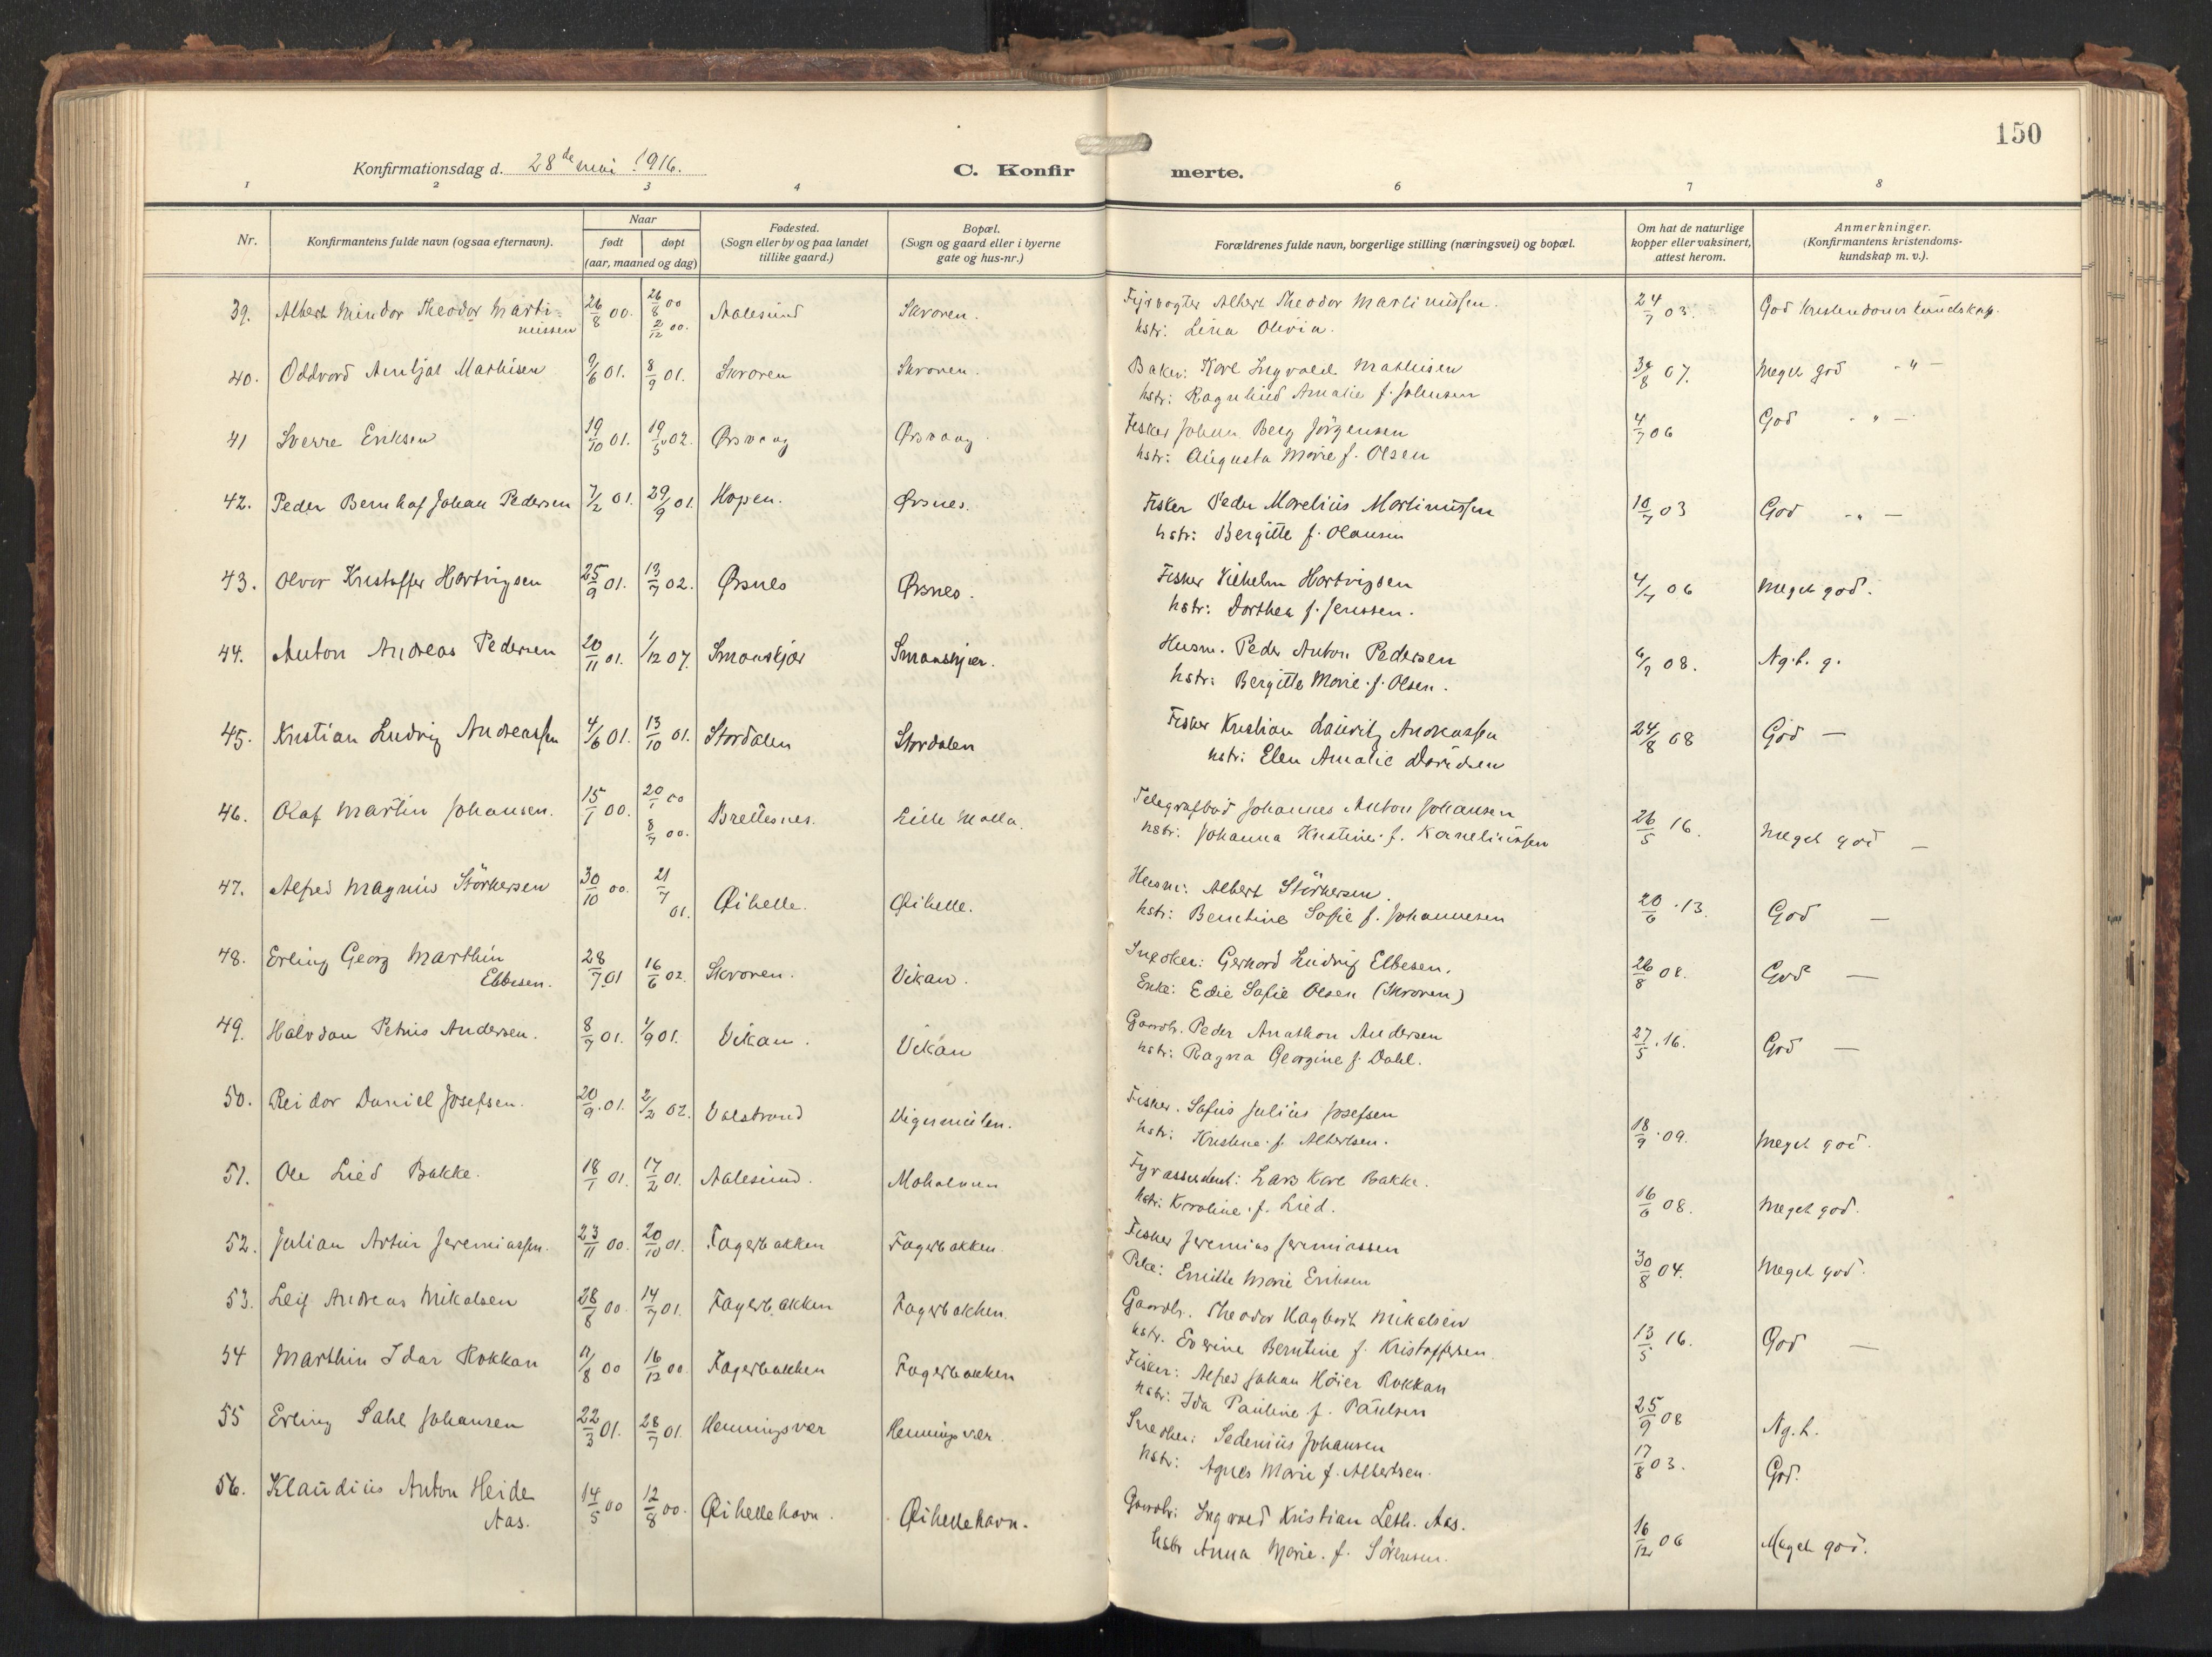 150
Konfirmationsdag d. 28de mai 1916.
C. Konfir merte.
1 2 3 4 6 7 8
Nr.
Konfirmantens fulde navn (ogsaa efternavn).
Naar
født døpt
(aar, maaned og dag)
Fødested.
(Sogn eller by og paa landet
tillike gaard.)
Bopæl.
(Sogn og gaard eller i byerne
gate og hus-nr.)
Forældrenes fulde navn, borgerlige stilling (næringsvei) og bopæl.
Om hat de naturlige
kopper eller vaksinert,
attest herom.
Anmerkninger.
(Konfirmantens kristendoms-
kundskap m. v.).
39. Albert Mindor Theodor Marti- 26/8 00. 26/8 00 Aalesund Skroven. Fyrvogter Albert Theodor Martinussen. 24/7 03. God kristendomskundskap.
nussen 2/12 00. hstr: Lina Olivia.
40. Oddvard Mathisen 9/6 01. 8/9 01. Skroven Skroven. Baker: Karl Ingvald Mathisen 30/8 07. Meget god - " -
hstr: Ragnhild Amalie f. Johnsen
41 Sverre Eriksen 19/10 01. 19/5 02. Ørsvaag Ørsvaag. Fisker Johan Berg Jörgensen 4/7 06 God - " -
hstr: Augusta Marie f. Olsen
42. Peder Bernhof Johan Pedersen 7/2 01. 29/9 01. Hopen. Ørsnes. Fisker Peder Marelius Martinussen 10/7 03 God - " -
hstr: Bergitte f. Olausen
43. Olvar Kristoffer Hartvigsen 25/9 01. 13/7 02. Ørsnes Ørsnes. Fisker Vilhelm Hartvigsen 4/7 06 Meget god.
hstr: Dorthea f. Jenssen.
44. Anton Andreas Pedersen 20/11 01. 1/12 07. Smaaskjær Smaaskjær. Husm. Peder Anton Pedersen 6/7 08. Ng. l. g.
hstr: Bergitte Marie f. Olsen.
45. Kristian Ludvig Andreassen 4/6 01. 13/10 01. Stordalen Stordalen Fisker Kristian Lauritz Andreassen 24/8 08 God -
hstr: Elen Amalie Davidsen
46. Olaf Martin Johansen. 15/1 00. 20/1 00 Brettesnes. Lille Molla. Telegrafbud Johannes Anton Johansen 26/5 16. Meget god -
8/7 00. hstr: Johanna Kristine f. Korneliussen
47. Alfred Magnus Störkersen 30/10 00. 21/7 01. Øihelle. Øihelle. Husm: Albert Störkersen 20/6 13. God -
hstr: Berntine Sofie f. Johannesen
48. Erling Georg Marthin 28/7 01 16/6 02. Skroven. Vikan. Gerhard Ludvig Ebbesen. 26/8 08. God -
Ebbesen. Enke: Edie Sofie Olsen (Skroven)
49. Halvdan Petrus Andersen. 8/7 01. 1/9 01. Vikan. Vikan Gaardbr. Peder Anathon Andersen 27/5 16. God -
hstr: Ragna Georgine f. Dahl.
50. Reidar Daniel Josefsen. 20/9 01. 2/2 02. Valstrand Digermulen. Fisker. Sofus Julius Josefsen 18/9 09. Meget god.
hstr: Kristine f. Albertsen.
51. Ole Lied Bakke. 18/1 01. 17/2 01. Aalesund. Moholmen Fyrassistent: Lars Karl Bakke. 16/6 08. Meget god.
hstr: Karoline f. Lied.
52. Julian Artur Jeremiassen. 23/11 00. 20/10 01. Fagerbakken Fagerbakken. Fisker Jeremias Jeremiassen 30/8 04. Meget god.
Pike: Emilie Marie Eriksen
53. Leif Andreas Mikalsen 28/6 00. 14/7 01. Fagerbakken Fagerbakken. Gaardbr. Theodor Hagbart Mikalsen 13/5 16. God -
hstr. Everine Berntine f. Kristoffersen.
54 Marthin Idar Rokkan 11/8 00 16/12 00. Fagerbakken Fagerbakken Fisker: Alfred Johan Höier Rokkan 25/9 08 Ng. l.
hstr: Ida Pauline f. Paulsen
55 Erling Sahl Johansen 22/3 01. 28/7 01. Henningsvær Henningsvær. Snedker: Sedenius Johansen 17/8 03. God.
hstr: Agnes Marie f. Albertsen.
56. Klaudius Anton Heide 14/5 00 12/8 00. Øihellehavn. Øihellehavn. Gaardbr: Ingvald Kristian Leth. Aas. 16/12 06 Meget god.
Aas. hstr Anna Marie. f. Sörensen.